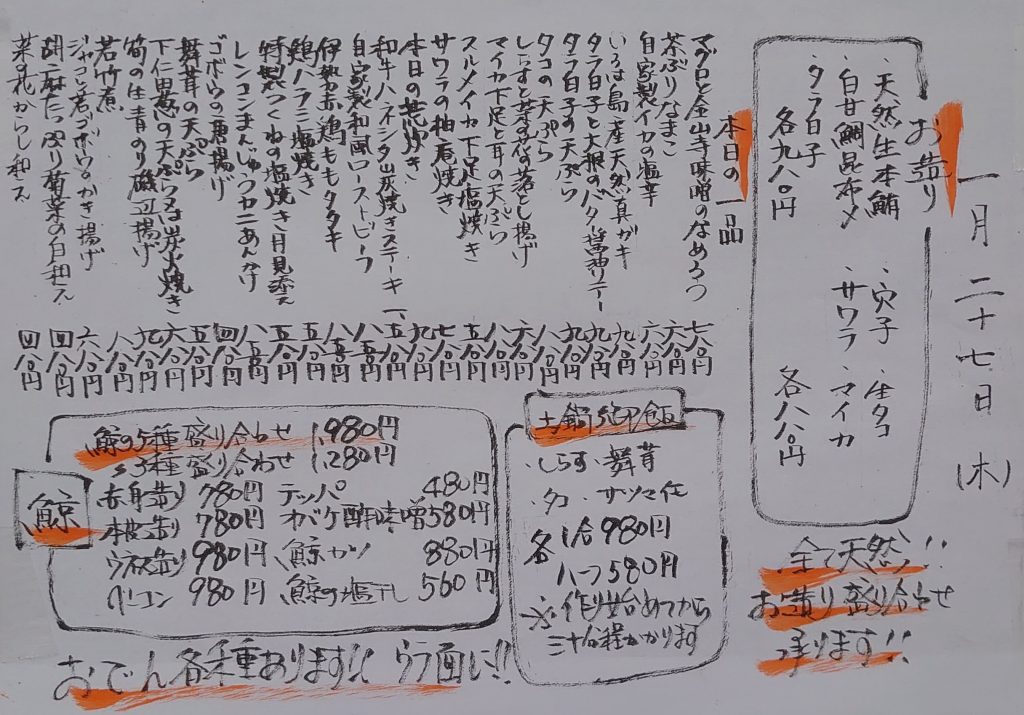 一月二十七日(木)
お造り
・天然生本鮪
・白甘鯛昆布〆
・タラ白子
各九八〇円
・穴子 ・生タコ
・サワラ ・マイカ
各八八〇円
全て天然!!
お造り盛り合わせ
承ります!!
本日の一品
マグロと金山寺味噌のなめろう 七八〇円
茶ぶりなまこ 六八〇円
自家製イカの塩辛 六八〇円
いろは島産天然真ガキ 九八〇円
タラ白子と大根のバター醤油ソテー 九八〇円
タラ白子の天ぷら 九八〇円
タコの天ぷら 八八〇円
しらすと菜の花の落とし揚げ 六八〇円
マイカ下足と耳の天ぷら 八八〇円
スルメイカ下足塩焼き 五八〇円
サワラの柚庵焼き 七八〇円
本日の荒炊き 九八〇円
和牛ハネシタ炭焼きステーキ 一、五八〇円
自家製和風ローストビーフ 八五〇円
伊勢赤鶏ももタタキ 八五〇円
鶏ハラミ塩焼き 五八〇円
特製つくねの塩焼き月見添え 五五〇円
レンコンまんじゅうカニあんかけ 八五〇円
ゴボウの唐揚げ 四八〇円
舞茸の天ぷら 五八〇円
下仁田葱の天ぷら又は炭火焼き 六八〇円
筍の生青のり磯辺揚げ 九八〇円
若竹煮 八八〇円
ジャコと若ゴボウのかき揚げ 六八〇円
胡麻たっぷり菊菜の白和え 四八〇円
菜の花からし和え 四八〇円
土鍋炊御飯
・しらす ・舞茸
・タコ ・サツマ芋
各 1合 980円
ハーフ 580円
※作り始めてから
三十分程かかります
鯨
鯨の5種盛り合わせ 1,980円
〃3種盛り合わせ 1,280円
赤身造り 780円 テッパ 480円
本皮造り 780円 オバケ酢味噌 580円
ウネ造り 980円 鯨カツ 880円
ベーコン 980円 鯨の塩干し 560円
おでん各種あります!! ウラ面に!!